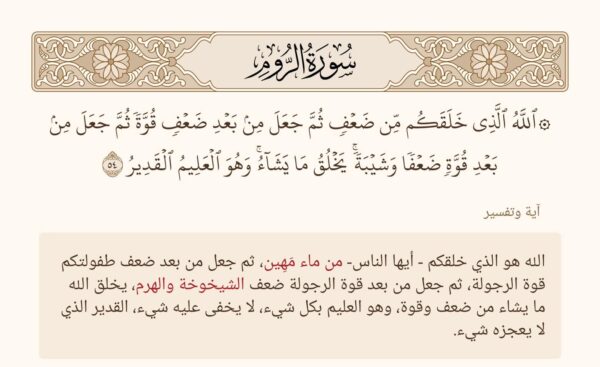 سُورَةُ الرُّومِ
۞ ٱللَّهُ ٱلَّذِى خَلَقَكُم مِّن ضَعْفٍ ثُمَّ جَعَلَ مِنۢ بَعْدِ ضَعْفٍ قُوَّةً ثُمَّ جَعَلَ مِنۢ
بَعْدِ قُوَّةٍ ضَعْفًا وَشَيْبَةً ۚ يَخْلُقُ مَا يَشَآءُ ۖ وَهُوَ ٱلْعَلِيمُ ٱلْقَدِيرُ ٥٤
آية وتفسير
الله هو الذي خلقكم - أيها الناس- من ماء مَهِين، ثم جعل من بعد ضعف طفولتكم
قوة الرجولة، ثم جعل من بعد قوة الرجولة ضعف الشيخوخة والهرم، يخلق الله
ما يشاء من ضعف وقوة، وهو العليم بكل شيء، لا يخفى عليه شيء، القدير الذي
لا يعجزه شيء.